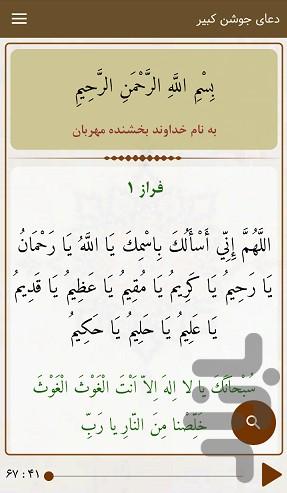 دعای جوشن کبیر
بِسْمِ اللَّهِ الرَّحْمَنِ الرَّحِيمِ
به نام خداوند بخشنده مهربان
فراز ۱
اللَّهُمَّ إِنِّي أَسْأَلُكَ بِاسْمِكَ يَا اللَّهُ يَا رَحْمَانُ
يَا رَحِيمُ يَا كَرِيمُ يَا مُقِيمُ يَا عَظِيمُ يَا قَدِيمُ
يَا عَلِيمُ يَا حَلِيمُ يَا حَكِيمُ
سُبْحَانَكَ يا لا اِلهَ اِلاّ اَنْتَ الْغَوْثَ الْغَوْثَ
خَلِّصْنا مِنَ النّارِ يا رَبِّ
۶۷ : ۴۱
بازار